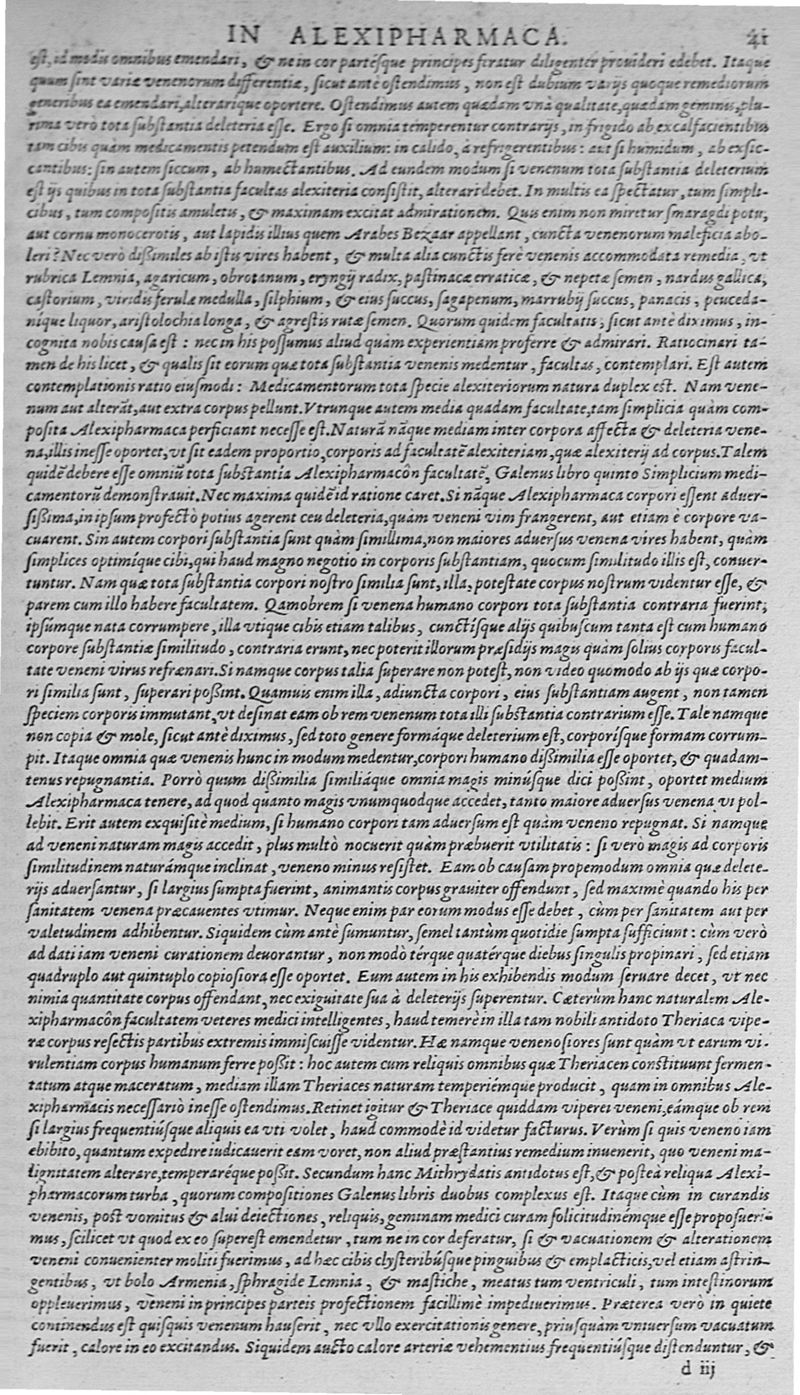 IN ALEXIPHARMACA. 41
est, id modis omnibus emendari, & ne in cor partésque principes feratur diligenter prouideri edebet. Itaque
quum sint variæ venenorum differentiæ, sicut antè ostendimus, non est dubium varijs quoque remediorum
generibus ea emendari, alterarique oportere. Ostendimus autem quædam vnâ qualitate, quædam geminis, plu-
rima verò tota substantia deleteria esse. Ergo si omnia temperentur contrarijs, in frigido ab excalfacientibus
tam cibis quàm medicamentis petendum est auxilium: in calido, à refrigerentibus: aut si humidum, ab exsic-
cantibus: sin autem siccum, ab humectantibus. Ad eundem modum si venenum tota substantia deleterium
est ijs quibus in tota substantia facultas alexiteria consistit, alterari debet. In multis ea spectatur, tum simpli-
cibus, tum compositis amuletis, & maximam excitat admirationem. Quis enim non miretur smaragdi potu,
aut cornu monocerotis, aut lapidis illius quem Arabes Bezaar appellant, cuncta venenorum maleficia abo-
leri? Nec verò dißimiles ab istis vires habent, & multa alia cunctis ferè venenis accommodata remedia, vt
rubrica Lemnia, agaricum, obrotanum, eryngij radix, pastinacæ erraticæ, & nepetæ semen, nardus gallica,
castorium, viridis ferulæ medulla, silphium, & eius succus, sagapenum, marrubij succus, panacis, peuceda-
níque liquor, aristolochia longa, & agrestis rutæ semen. Quorum quidem facultatis, sicut antè diximus, in-
cognita nobis causa est: nec in his possumus aliud quàm experientiam proferre & admirari. Ratiocinari ta-
men de his licet, & qualis sit eorum quæ tota substantia venenis medentur, facultas, contemplari. Est autem
contemplationis ratio eiusmodi: Medicamentorum tota specie alexiteriorum natura duplex est. Nam vene-
num aut alterãt, aut extra corpus pellunt. Vtrunque autem media quadam facultate, tam simplicia quàm com-
posita Alexipharmaca perficiant necesse est. Naturã nãque mediam inter corpora affecta & deleteria vene-
na, illis inesse oportet, vt sit eadem proportio, corporis ad facultatẽ alexiteriam, quæ alexiterij ad corpus. Talem
quidẽ debere esse omniũ tota substãtia Alexipharmacôn facultatẽ, Galenus libro quinto Simplicium medi-
camentorũ demonstrauit. Nec maxima quidẽ id ratione caret. Si nãque Alexipharmaca corpori essent aduer-
sißima, in ipsum profectò potius agerent ceu deleteria, quàm veneni vim frangerent, aut etiam è corpore va-
cuarent. Sin autem corpori substantia sunt quàm simillima, non maiores aduersus venena vires habent, quàm
simplices optimíque cibi, qui haud magno negotio in corporis substantiam, quocum similitudo illis est, conuer-
tuntur. Nam quæ tota substantia corpori nostro similia sunt, illa, potestate corpus nostrum videntur esse, &
parem cum illo habere facultatem. Qamobrem si venena humano corpori tota substantia contraria fuerint,
ipsúmque nata corrumpere, illa vtique cibis etiam talibus, cunctísque alijs quibuscum tanta est cum humano
corpore substantiæ similitudo, contraria erunt, nec poterit illorum præsidijs magis quàm solius corporis facul-
tate veneni virus refrænari. Si namque corpus talia superare non potest, non video quomodo ab ijs quæ corpo-
ri similia sunt, superari poßint. Quamuis enim illa, adiuncta corpori, eius substantiam augent, non tamen
speciem corporis immutant, vt desinat eam ob rem venenum tota illi substantia contrarium esse. Tale namque
non copia & mole, sicut antè diximus, sed toto genere formáque deleterium est, corporísque formam corrum-
pit. Itaque omnia quæ venenis hunc in modum medentur, corpori humano dißimilia esse oportet, & quadam-
tenus repugnantia. Porrò quum dißimilia similiáque omnia magis minúsque dici poßint, oportet medium
Alexipharmaca tenere, ad quod quanto magis vnumquodque accedet, tanto maiore aduersus venena vi pol-
lebit. Erit autem exquisitè medium, si humano corpori tam aduersum est quàm veneno repugnat. Si namque
ad veneni naturam magis accedit, plus multò nocuerit quàm præbuerit vtilitatis: si verò magis ad corporis
similitudinem naturámque inclinat, veneno minus resistet. Eam ob causam propemodum omnia quæ delete-
rijs aduersantur, si largius sumpta fuerint, animantis corpus grauiter offendunt, sed maximè quando his per
sanitatem venena præcauentes vtimur. Neque enim par eorum modus esse debet, cùm per sanitatem aut per
valetudinem adhibentur. Siquidem cùm antè sumuntur, semel tantùm quotidie sumpta sufficiunt: cùm verò
ad dati iam veneni curationem deuorantur, non modò térque quatérque diebus singulis propinari, sed etiam
quadruplo aut quintuplo copiosiora esse oportet. Eum autem in his exhibendis modum seruare decet, vt nec
nimia quantitate corpus offendant, nec exiguitate sua à deleterijs superentur. Cæterùm hanc naturalem Ale-
xipharmacôn facultatem veteres medici intelligentes, haud temerè in illa tam nobili antidoto Theriaca vipe-
ræ corpus resectis partibus extremis immiscuisse videntur. Hæ namque venenosiores sunt quàm vt earum vi-
rulentiam corpus humanum ferre poßit: hoc autem cum reliquis omnibus quæ Theriacen constituunt fermen-
tatum atque maceratum, mediam illam Theriaces naturam temperiémque producit, quam in omnibus Ale-
xipharmacis necessariò inesse ostendimus. Retinet igitur & Theriace quiddam viperei veneni, eámque ob rem
si largius frequentiúsque aliquis ea vti volet, haud commodè id videtur facturus. Verùm si quis veneno iam
ebibito, quantum expedire iudicauerit eam voret, non aliud præstantius remedium inuenerit, quo veneni ma-
lignitatem alterare, temperaréque poßit. Secundum hanc Mithrydatis antidotus est, & posteà reliqua Alexi-
pharmacorum turba, quorum compositiones Galenus libris duobus complexus est. Itaque cùm in curandis
venenis, post vomitus & alui deiectiones, reliquis, geminam medici curam solicitudinémque esse proposueri-
mus, scilicet vt quod ex eo superest emendetur, tum ne in cor deferatur, si & vacuationem & alterationem
veneni conuenienter moliti fuerimus, ad hæc cibis clysteribúsque pinguibus & emplacticis, vel etiam astrin-
gentibus, vt bolo Armenia, sphragide Lemnia, & mastiche, meatus tum ventriculi, tum intestinorum
oppleuerimus, vèneni in principes parteis profectionem facillimè impediuerimus. Præterea verò in quiete
continendus est quisquis venenum hauserit, nec vllo exercitationis genere, priusquàm vniuersum vacuatum
fuerit, calore in eo excitandus. Siquidem aucto calore arteriæ vehementius frequentiúsque distenduntur, &
d iij